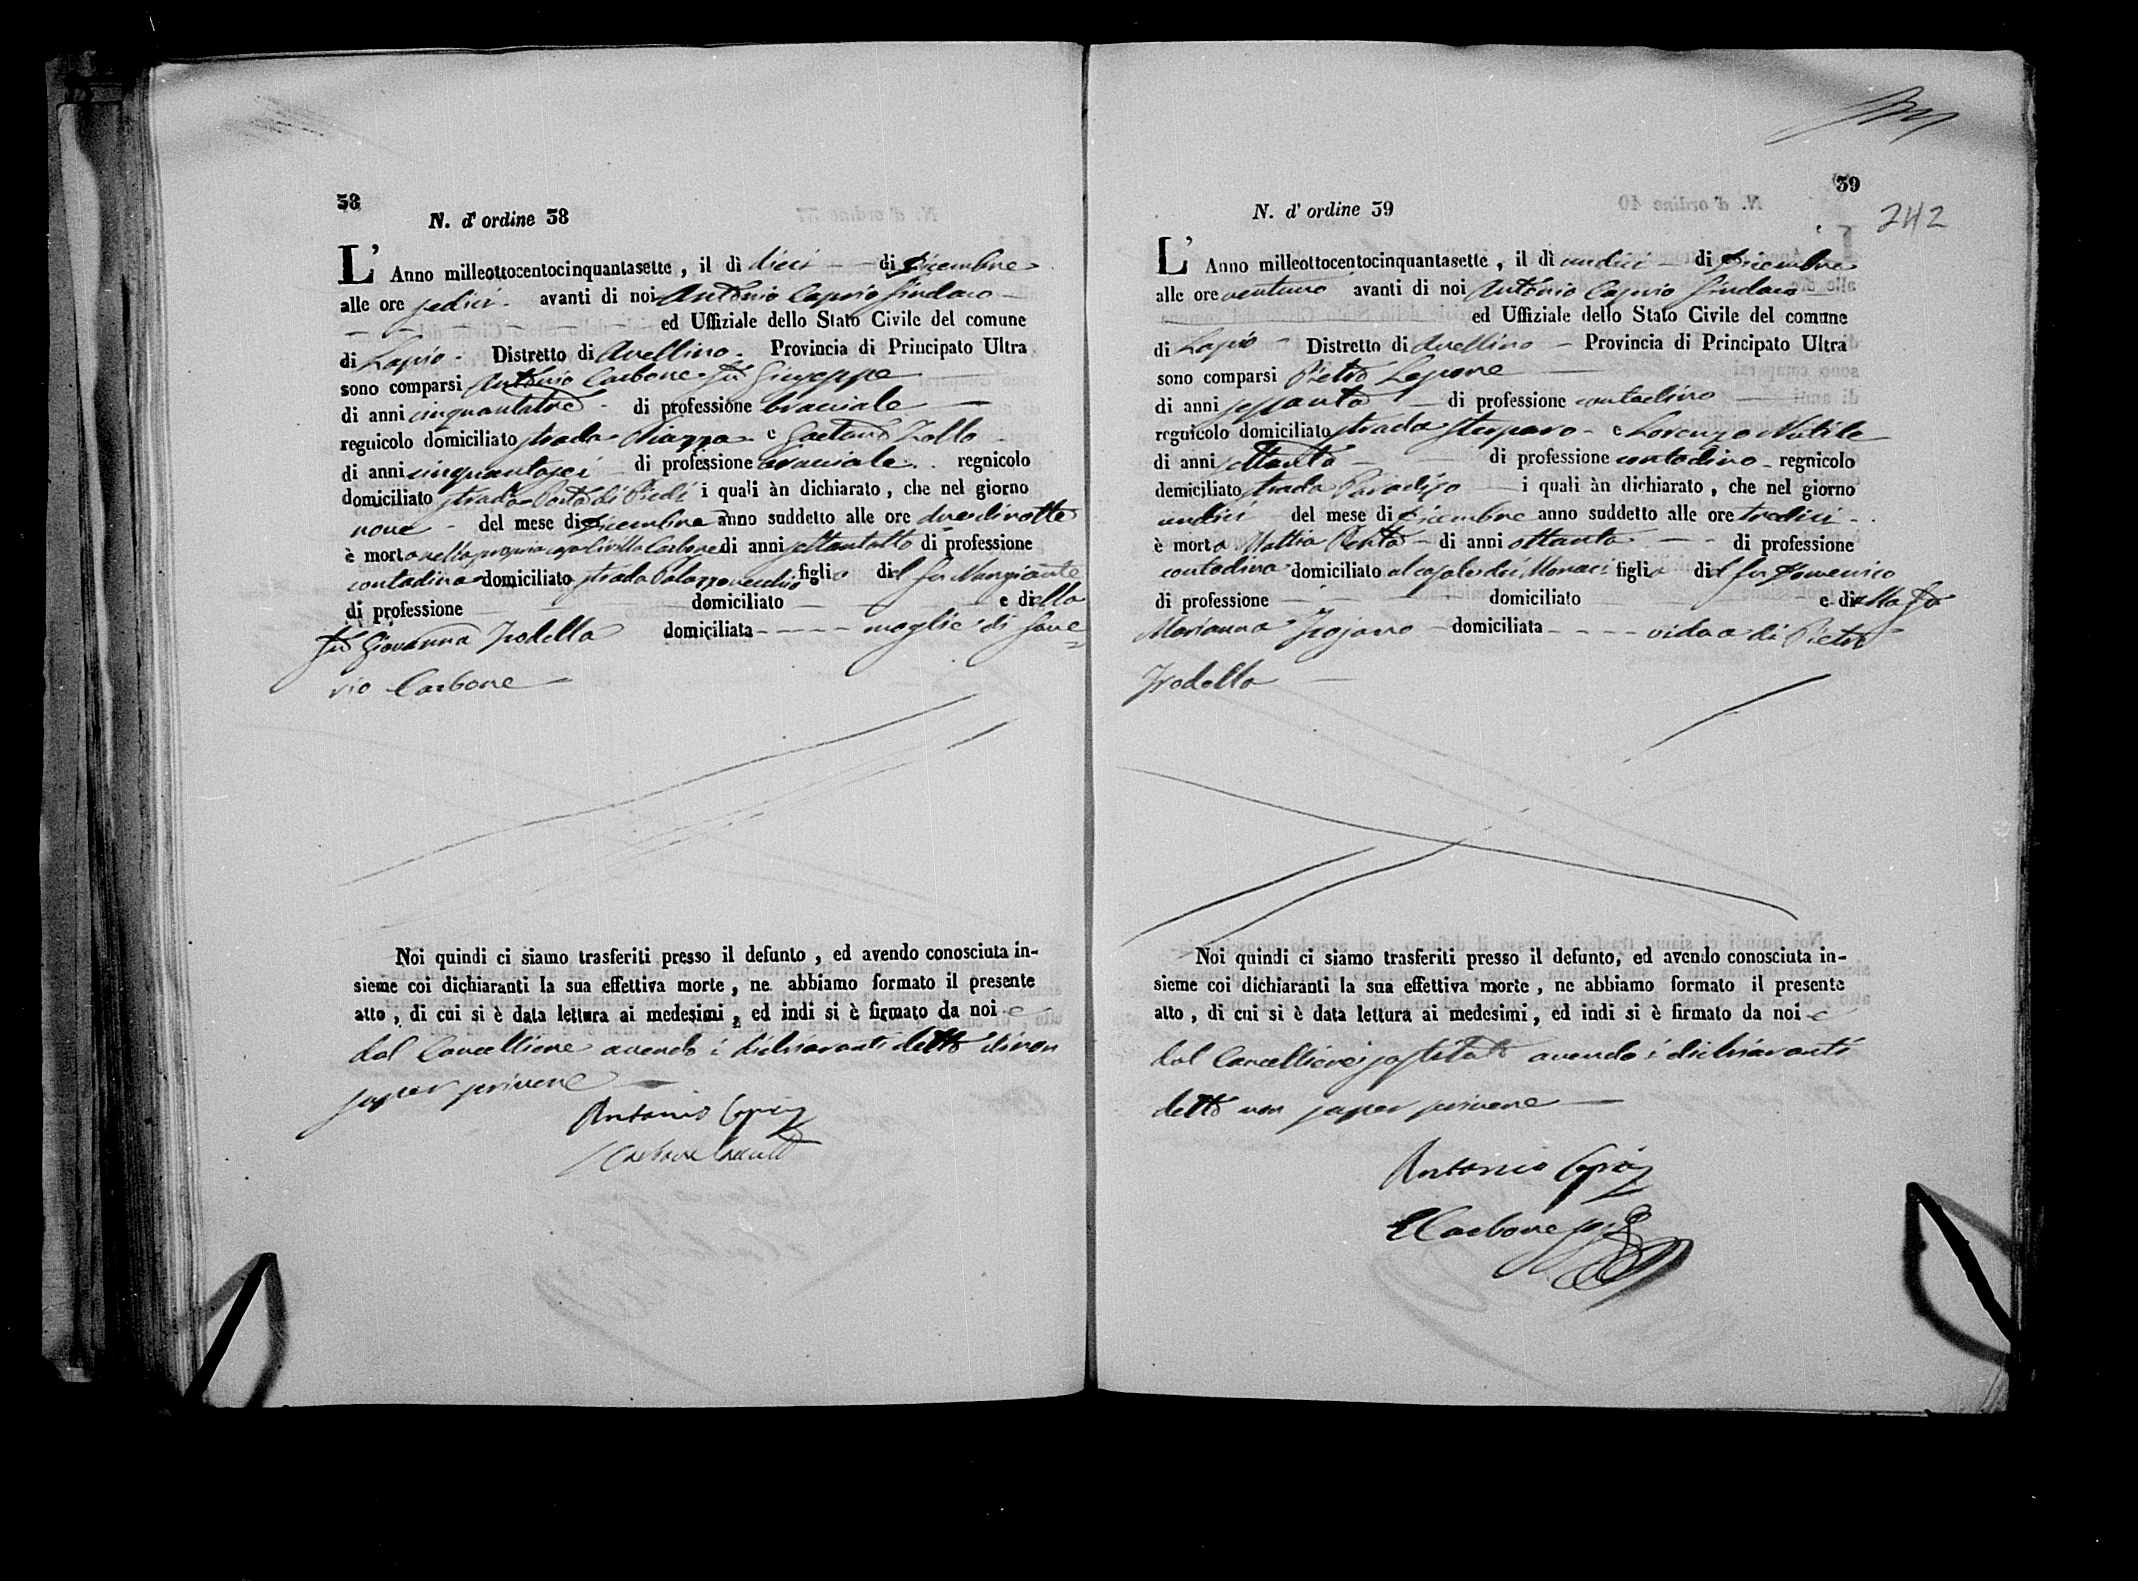 38
N. d' ordine 38
L' Anno milleottocentocinquantasette, il dì dieci di Dicembre
alle ore sedici avanti di noi Antonio Caprio Sindaco
ed Uffiziale dello Stato Civile del comune
di Lapio Distretto di Avellino Provincia di Principato Ultra
sono comparsi Antonio Carbone fu Giuseppe
di anni cinquantatre di professione bracciale
regnicolo domiciliato strada Piazza e Gaetano Zollo
di anni cinquantasei di professione bracciale regnicolo
domiciliato strada Porta di Piedi i quali àn dichiarato, che nel giorno
nove del mese di Dicembre anno suddetto alle ore due di notte
è morta nella propria casa Carbone di anni settantotto di professione
contadina domiciliato strada Palazzo vecchio figlia del fu
di professione domiciliato e di ella
fu Giovanna Trodella domiciliata moglie di Save=
rio Carbone
Noi quindi ci siamo trasferiti presso il defunto, ed avendo conosciuta in-
sieme coi dichiaranti la sua effettiva morte, ne abbiamo formato il presente
atto, di cui si è data lettura ai medesimi, ed indi si è firmato da noi e
dal Cancelliere avendo i dichiaranti detto di non
saper scrivere
Antonio Caprio
Carbone
39
N. d' ordine 39
242
L' Anno milleottocentocinquantasette, il dì undici di Dicembre
alle ore ventuno avanti di noi Antonio Caprio Sindaco
ed Uffiziale dello Stato Civile del comune
di Lapio Distretto di Avellino Provincia di Principato Ultra
sono comparsi Pietro Lepore
di anni sessanta di professione contadino
regnicolo domiciliato strada Sterparo e Lorenzo Nutile
di anni settanta di professione contadino regnicolo
domiciliato strada Paradiso i quali àn dichiarato, che nel giorno
undici del mese di Dicembre anno suddetto alle ore tredici
è morta Mattia Penta di anni ottanta di professione
contadina domiciliato al casale dei Monaci figlia del fu Domenico
di professione domiciliato e di ella fu
Marianna Trojano domiciliata vidoa di Pietro
Trodella
Noi quindi ci siamo trasferiti presso il defunto, ed avendo conosciuta in-
sieme coi dichiaranti la sua effettiva morte, ne abbiamo formato il presente
atto, di cui si è data lettura ai medesimi, ed indi si è firmato da noi e
dal Cancelliere sostituto avendo i dichiaranti
detto non saper scrivere
Antonio Caprio
Carbone